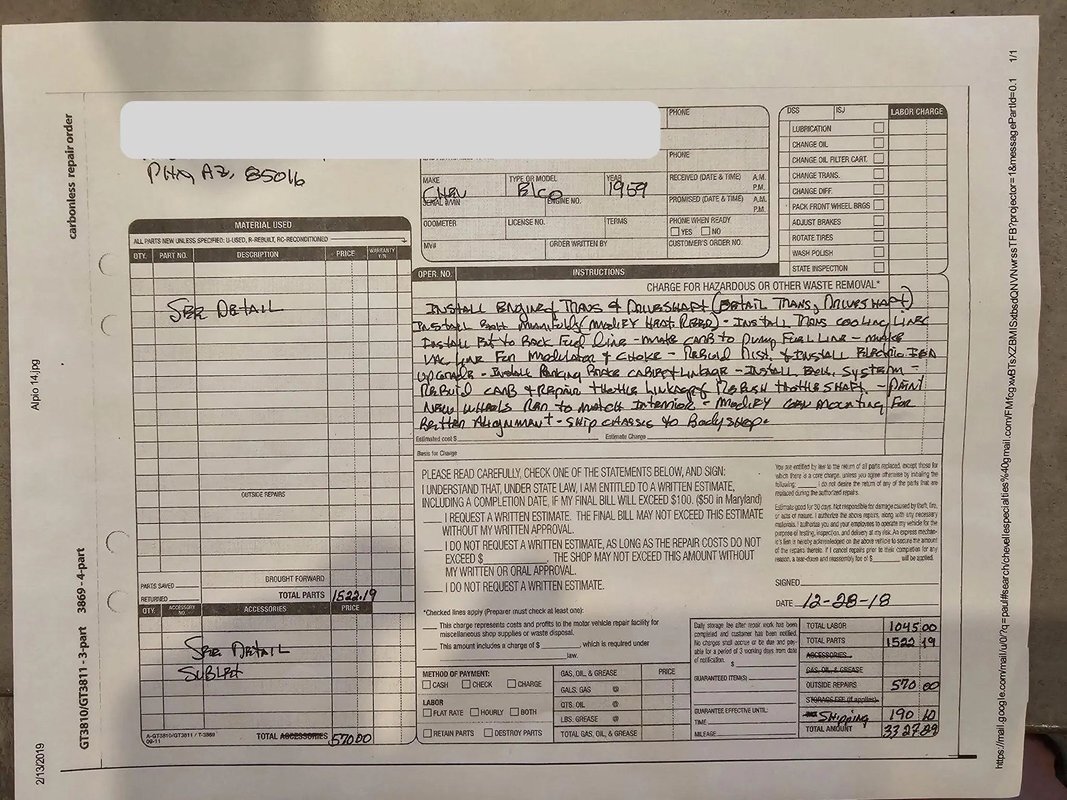 carbonless repair order
GT3810/GT3811 - 3-part 3869 - 4-part
Alpio 14.jpg
2/13/2019
1/1
PHX AZ. 85016
PHONE
PHONE
MAKE
CHEV
TYPE OR MODEL
Elco
YEAR
1959
RECEIVED (DATE & TIME) A.M.
P.M.
SERIAL #/VIN
ENGINE NO.
PROMISED (DATE & TIME) A.M.
P.M.
ODOMETER
LICENSE NO.
TERMS
PHONE WHEN READY
YES NO
MV#
ORDER WRITTEN BY
CUSTOMER'S ORDER NO.
LABOR CHARGE
LUBRICATION
CHANGE OIL
CHANGE OIL FILTER CART.
CHANGE TRANS.
CHANGE DIFF.
PACK FRONT WHEEL BRGS
ADJUST BRAKES
ROTATE TIRES
WASH POLISH
STATE INSPECTION
MATERIAL USED
ALL PARTS NEW UNLESS SPECIFIED: U-USED, R-REBUILT, RC-RECONDITIONED
QTY. PART NO. DESCRIPTION PRICE WARRANTY Y/N
SEE DETAIL
OUTSIDE REPAIRS
PARTS SAVED
RETURNED
BROUGHT FORWARD
TOTAL PARTS 1522.19
QTY. ACCESSORY NO. ACCESSORIES PRICE
SEE DETAIL
SUBLET
A-GT3810/GT3811 / T-3869
09-11
TOTAL ACCESSORIES 570.00
OPER. NO. INSTRUCTIONS
CHARGE FOR HAZARDOUS OR OTHER WASTE REMOVAL*
INSTALL ENGINE, TRANS & DRIVESHAFT (DETAIL TRANS, DRIVESHAFT)
INSTALL EXH MANIFOLD (MODIFY HEAT RISER) - INSTALL TRANS COOLING LINES
INSTALL FRT TO BACK FUEL LINE - MAKE CARB TO PUMP FUEL LINE - MAKE
VAC LINE FOR MODULATOR & CHOKE - REBUILD DIST. & INSTALL ELECTRONIC IGN
UPGRADE - INSTALL PARKING BRAKE CABLES & LINKAGE - INSTALL EXH. SYSTEM -
REBUILD CARB & REPAIR THROTTLE LINKAGE & THROTTLE SHAFT - PAINT
NEW WHEELS RED TO MATCH INTERIOR - MODIFY MOUNTING FOR
BETTER ALIGNMENT - SHIP CHASSIS TO BODY SHOP.
Estimated cost $ Estimate Charge
Basis for Charge
PLEASE READ CAREFULLY, CHECK ONE OF THE STATEMENTS BELOW, AND SIGN:
I UNDERSTAND THAT, UNDER STATE LAW, I AM ENTITLED TO A WRITTEN ESTIMATE,
INCLUDING A COMPLETION DATE, IF MY FINAL BILL WILL EXCEED $100. ($50 in Maryland)
I REQUEST A WRITTEN ESTIMATE. THE FINAL BILL MAY NOT EXCEED THIS ESTIMATE
WITHOUT MY WRITTEN APPROVAL.
I DO NOT REQUEST A WRITTEN ESTIMATE, AS LONG AS THE REPAIR COSTS DO NOT
EXCEED $ THE SHOP MAY NOT EXCEED THIS AMOUNT WITHOUT
MY WRITTEN OR ORAL APPROVAL.
I DO NOT REQUEST A WRITTEN ESTIMATE.
*Checked lines apply (Preparer must check at least one):
This charge represents costs and profits to the motor vehicle repair facility for
miscellaneous shop supplies or waste disposal.
This amount includes a charge of $ , which is required under
law.
METHOD OF PAYMENT:
CASH CHECK CHARGE
LABOR
FLAT RATE HOURLY BOTH
RETAIN PARTS DESTROY PARTS
GAS, OIL, & GREASE PRICE
GALS. GAS @
QTS. OIL @
LBS. GREASE @
TOTAL GAS, OIL, & GREASE
You are entitled by law to the return of all parts replaced, except those for
which there is a core charge, unless you agree otherwise by initialing the
following: I do not desire the return of any of the parts that are
replaced during the authorized repairs.
Estimate good for 30 days. Not responsible for damage caused by theft, fire,
or acts of nature. I authorize the above repairs, along with any necessary
materials. I authorize you and your employees to operate my vehicle for the
purpose of testing, inspection, and delivery at my risk. An express mechan-
ic's lien is hereby acknowledged on the above vehicle to secure the amount
of the repairs thereto. If I cancel repairs prior to their completion for any
reason, a tear-down and reassembly fee of $ will be applied.
SIGNED
DATE 12-28-18
Daily storage fee after repair work has been
completed and customer has been notified.
No charges shall accrue or be due and pay-
able for a period of 3 working days from date
of notification. $
GUARANTEED ITEM(S)
GUARANTEE EFFECTIVE UNTIL:
TIME
MILEAGE
TOTAL LABOR 1045.00
TOTAL PARTS 1522 19
ACCESSORIES
GAS, OIL, & GREASE
OUTSIDE REPAIRS 570 00
STORAGE FEE (if applies)
Shipping 190 10
TOTAL AMOUNT 3327.29